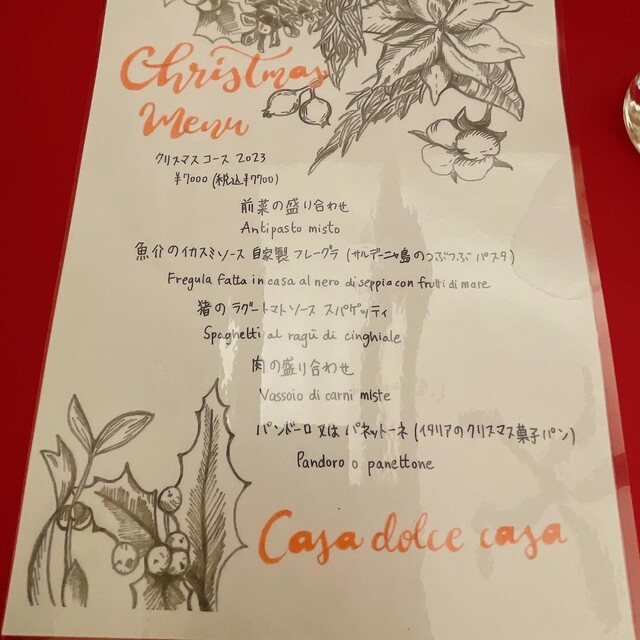 Christmas
Menu
クリスマスコース 2023
¥7000 (税込¥7700)
前菜の盛り合わせ
Antipasto misto
魚介のイカスミソース 自家製 フレーグラ (サルデーニャ島のつぶつぶパスタ)
Fregula fatta in casa al nero di seppia con frutti di mare
猪のラグートマトソース スパゲッティ
Spaghetti al ragù di cinghiale
肉の盛り合わせ
Vassoio di carni miste
パンドーロ 又は パネットーネ (イタリアのクリスマス菓子パン)
Pandoro o panettone
Casa dolce casa